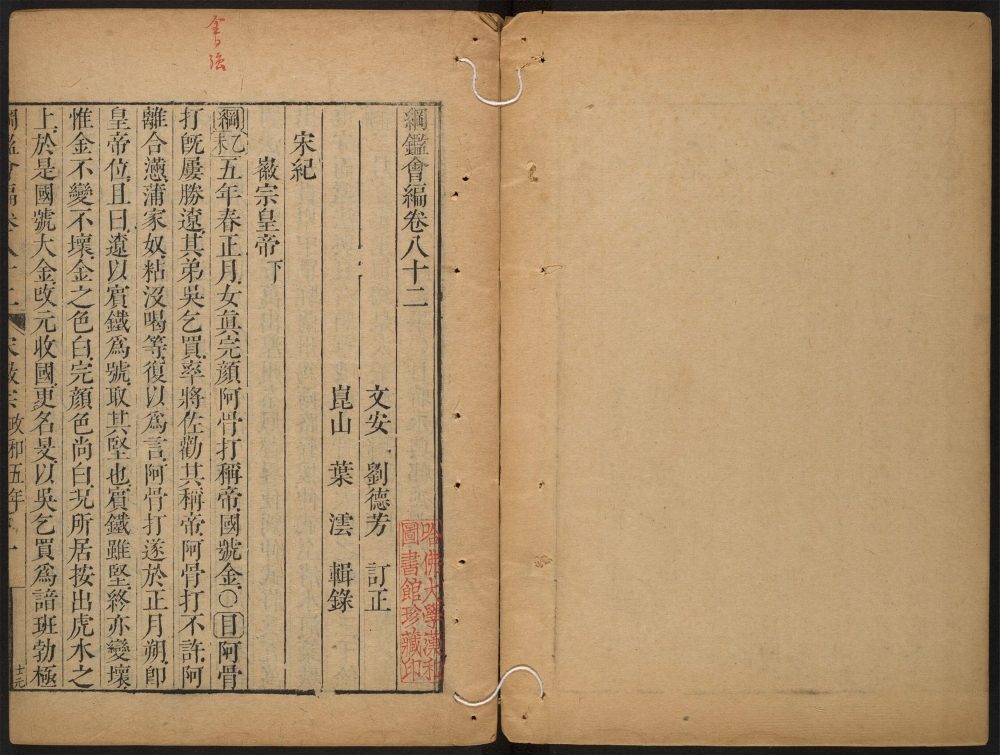 綱鑑會編卷八十二
文安 劉德芳 訂正
崑山 葉澐 輯錄
宋紀
徽宗皇帝下
綱乙未五年春正月女真完顏阿骨打稱帝國號金○目阿骨
打旣屢勝遼其弟吳乞買率將佐勸其稱帝阿骨打不許阿
離合懣蒲家奴粘沒喝等復以爲言阿骨打遂於正月朔卽
皇帝位且曰遼以賓鐵爲號取其堅也賓鐵雖堅終亦變壞
惟金不變不壞金之色白完顏色尚白況所居按出虎水之
上於是國號大金改元收國更名旻以吳乞買爲諳班勃極
綱鑑會編卷八十二 宋徽宗政和五年 一
哈佛大學漢和
圖書館珍藏印